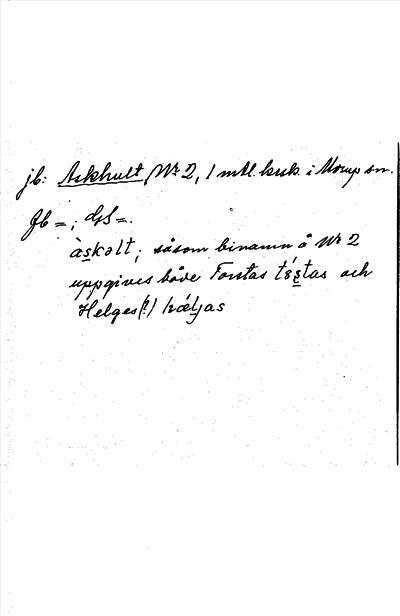 jb: Askhult Nr 2, 1 mtl. krsk. i Morup sn.
Jb =; GS =.
àskəlt; såsom binamn å Nr 2
uppgives både Torstas tɔ́stas och
Helges (?) hæljas